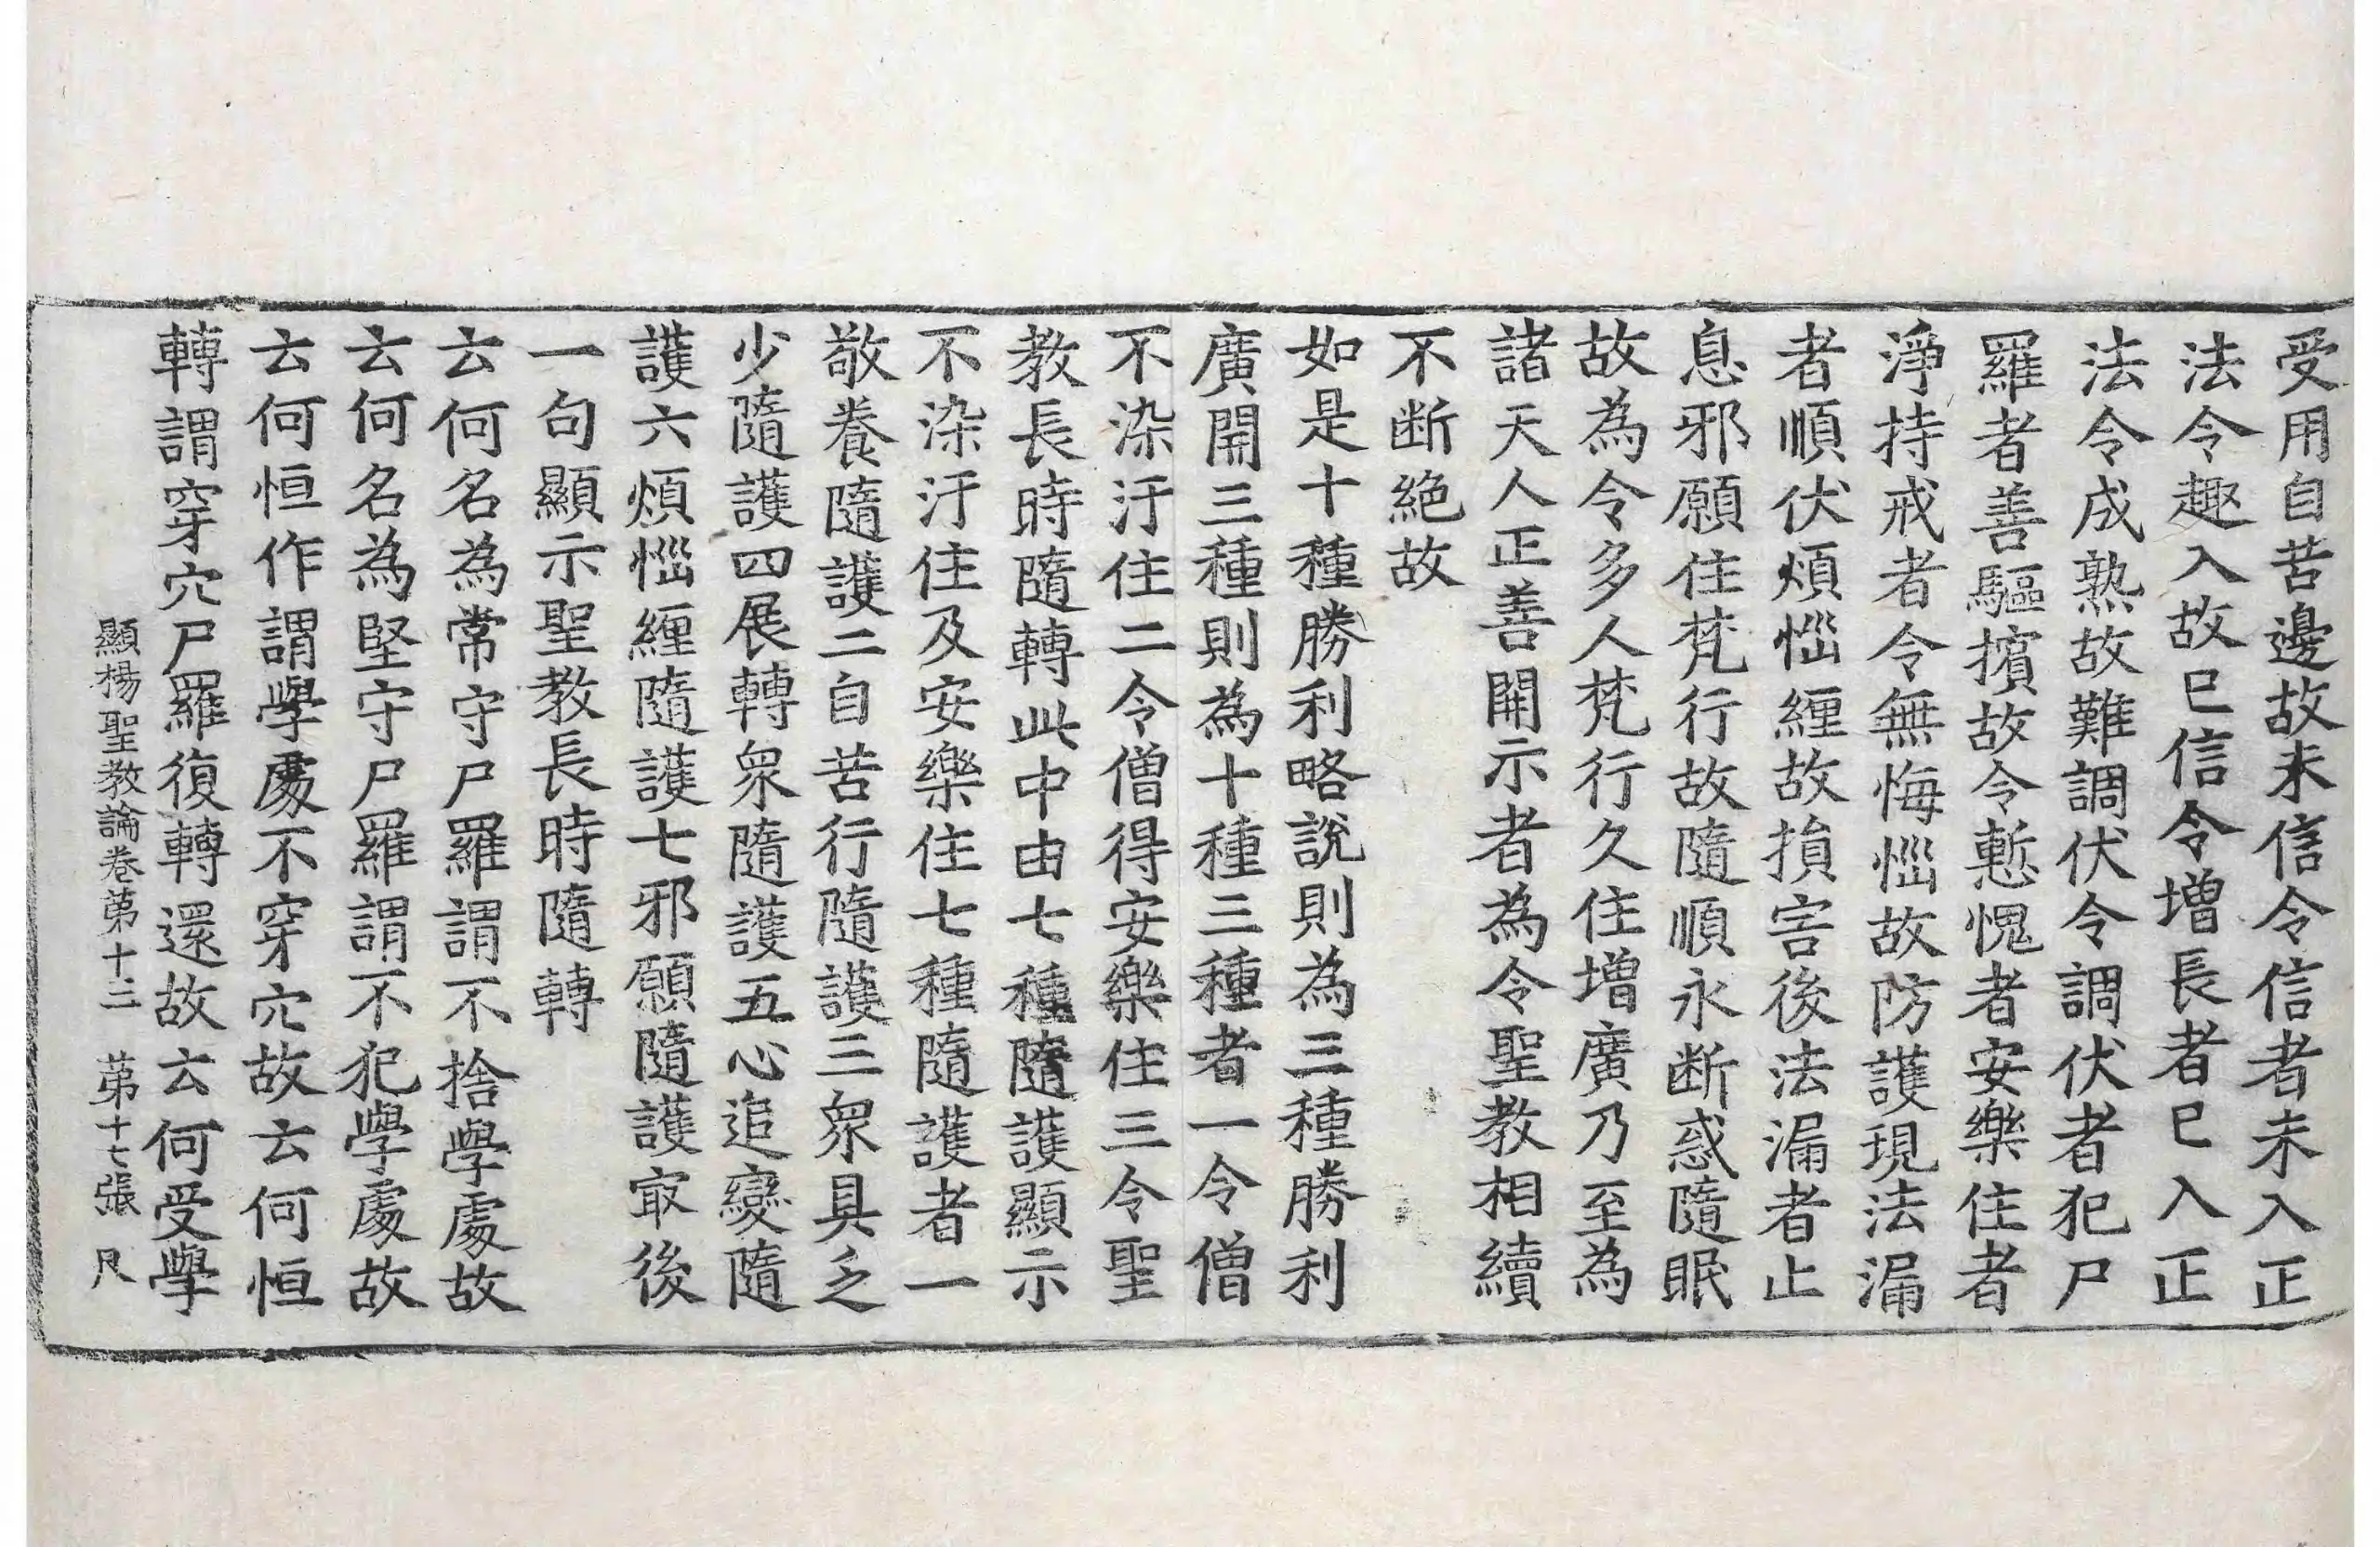 受用自苦邊故未信令信者未入正
法令趣入故已信令增長者已入正
法令成熟故難調伏令調伏者犯尸
羅者善驅擯故令慙愧者安樂住者
淨持戒者令無悔惱故防護現法漏
者順伏煩惱纏故損害後法漏者止
息邪願住梵行故隨順永断惑隨眠
故為令多人梵行久住增廣乃至為
諸天人正善開示者為令聖教相續
不断絕故
如是十種勝利略說則為三種勝利
廣開三種則為十種三種者一令僧
不染汙住二令僧得安樂住三令聖
教長時隨轉此中由七種隨護顯示
不染汙住及安樂住七種隨護者一
敬養隨護二自苦行隨護三衆具乏
少隨護四展轉衆隨護五心追變隨
護六煩惱纏隨護七邪願隨護㝡後
一句顯示聖教長時隨轉
云何名為常守尸羅謂不捨學處故
云何名為堅守尸羅謂不犯學處故
云何恒作謂學處不穿穴故云何恒
轉謂穿穴尸羅復轉還故云何受學
顯揚聖教論卷第十三 第十七張 尺